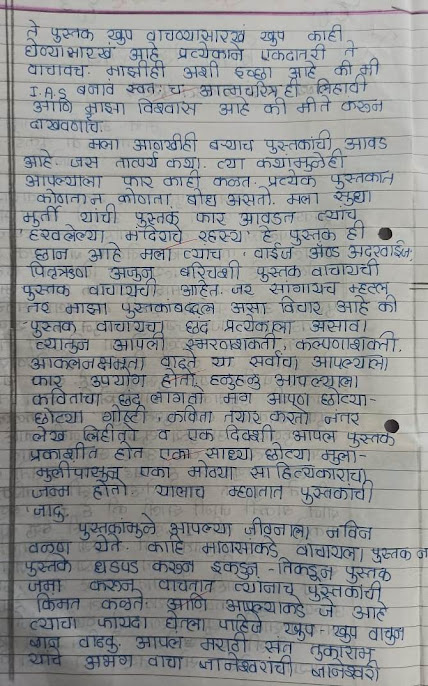 ते पुस्तक खुप वाचण्यासारखं खुप काही
घेण्यासारखं आहे प्रत्येकाने एकदातरी ते
वाचावचं. माझीही अशी इच्छा आहे की मी
I.A.S बनावं स्वतःच आत्मचरित्रही लिहावी
आणि माझा विश्वास आहे की मी ते करून
दाखवणारच.
मला आणखीही बऱ्याच पुस्तकांची आवड
आहे. जस तात्पर्य कथा. त्या कथामुळेही
आपल्याला फार काही कळतं. प्रत्येक पुस्तकात
कोणताना कोणता बोध असतो. मला सुधा
मुर्ती यांची पुस्तक फार आवडतं त्यांच
'हरवलेल्या मंदिराचे रहस्य' हे पुस्तक ही
छान आहे मला त्यांच 'वाईज अँण्ड अदरवाईज,
पितृऋण अजुन बरिचशी पुस्तक वाचायची
पुस्तक वाचायची आहेत. जर सांगायच म्हटल
तर माझा पुस्तकाबद्दल असा विचार आहे की
पुस्तक वाचायचा छंद प्रत्येकाला असावा
त्यातुन आपली स्मरणशक्ती, कल्पनाशक्ती.
आकलनक्षमता वाढते या सर्वांचा आपल्याला
फार उपयोग होतो. हळुहळु आपल्याला
कवितांचा छंद लागतो मग आपण छोट्या-
छोट्या गोष्टी, कविता तयार करतो नंतर
लेख लिहीतो व एक दिवशी आपलं पुस्तक
प्रकाशीत होतं एका साध्या छोट्या मुला-
मुलीपासुन एका मोठ्या साहित्यकाराचा
जन्म होतो यालाच म्हणतात पुस्तकाची
'जादु'.
पुस्तकामुळे आपल्या जीवनाला नविन
वळण येते. काहि माणसाकडे वाचायला पुस्तक न
पुस्तक धडपड करून इकडुन-तिकडुन पुस्तक
जमा करून वाचतात त्यांनाच पुस्तकाची
किंमत कळते आणि आपल्याकडे जे आहे
त्याचा फायदा घेतला पाहिजे खुप खुप वाचुन
ज्ञान वाढवु. आपलं मराठी संत तुकाराम
यांचे अभंग वाचा ज्ञानेश्वरांची ज्ञानेश्वरी